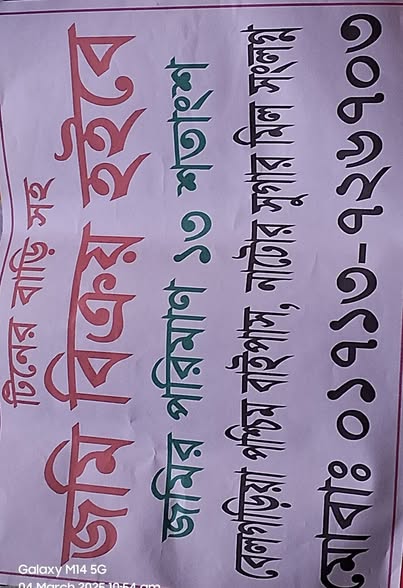 টিনের বাড়ি সহ
জমি বিক্রয় হইবে
জমির পরিমাণ ১৩ শতাংশ
বেলগড়িয়া পশ্চিম বাইপাস, নাটোর সুগার মিল সংলগ্ন
মোবাঃ ০১৭১৩-৭২৬৭০৩
Galaxy M14 5G
04 March 2025 10:54 am